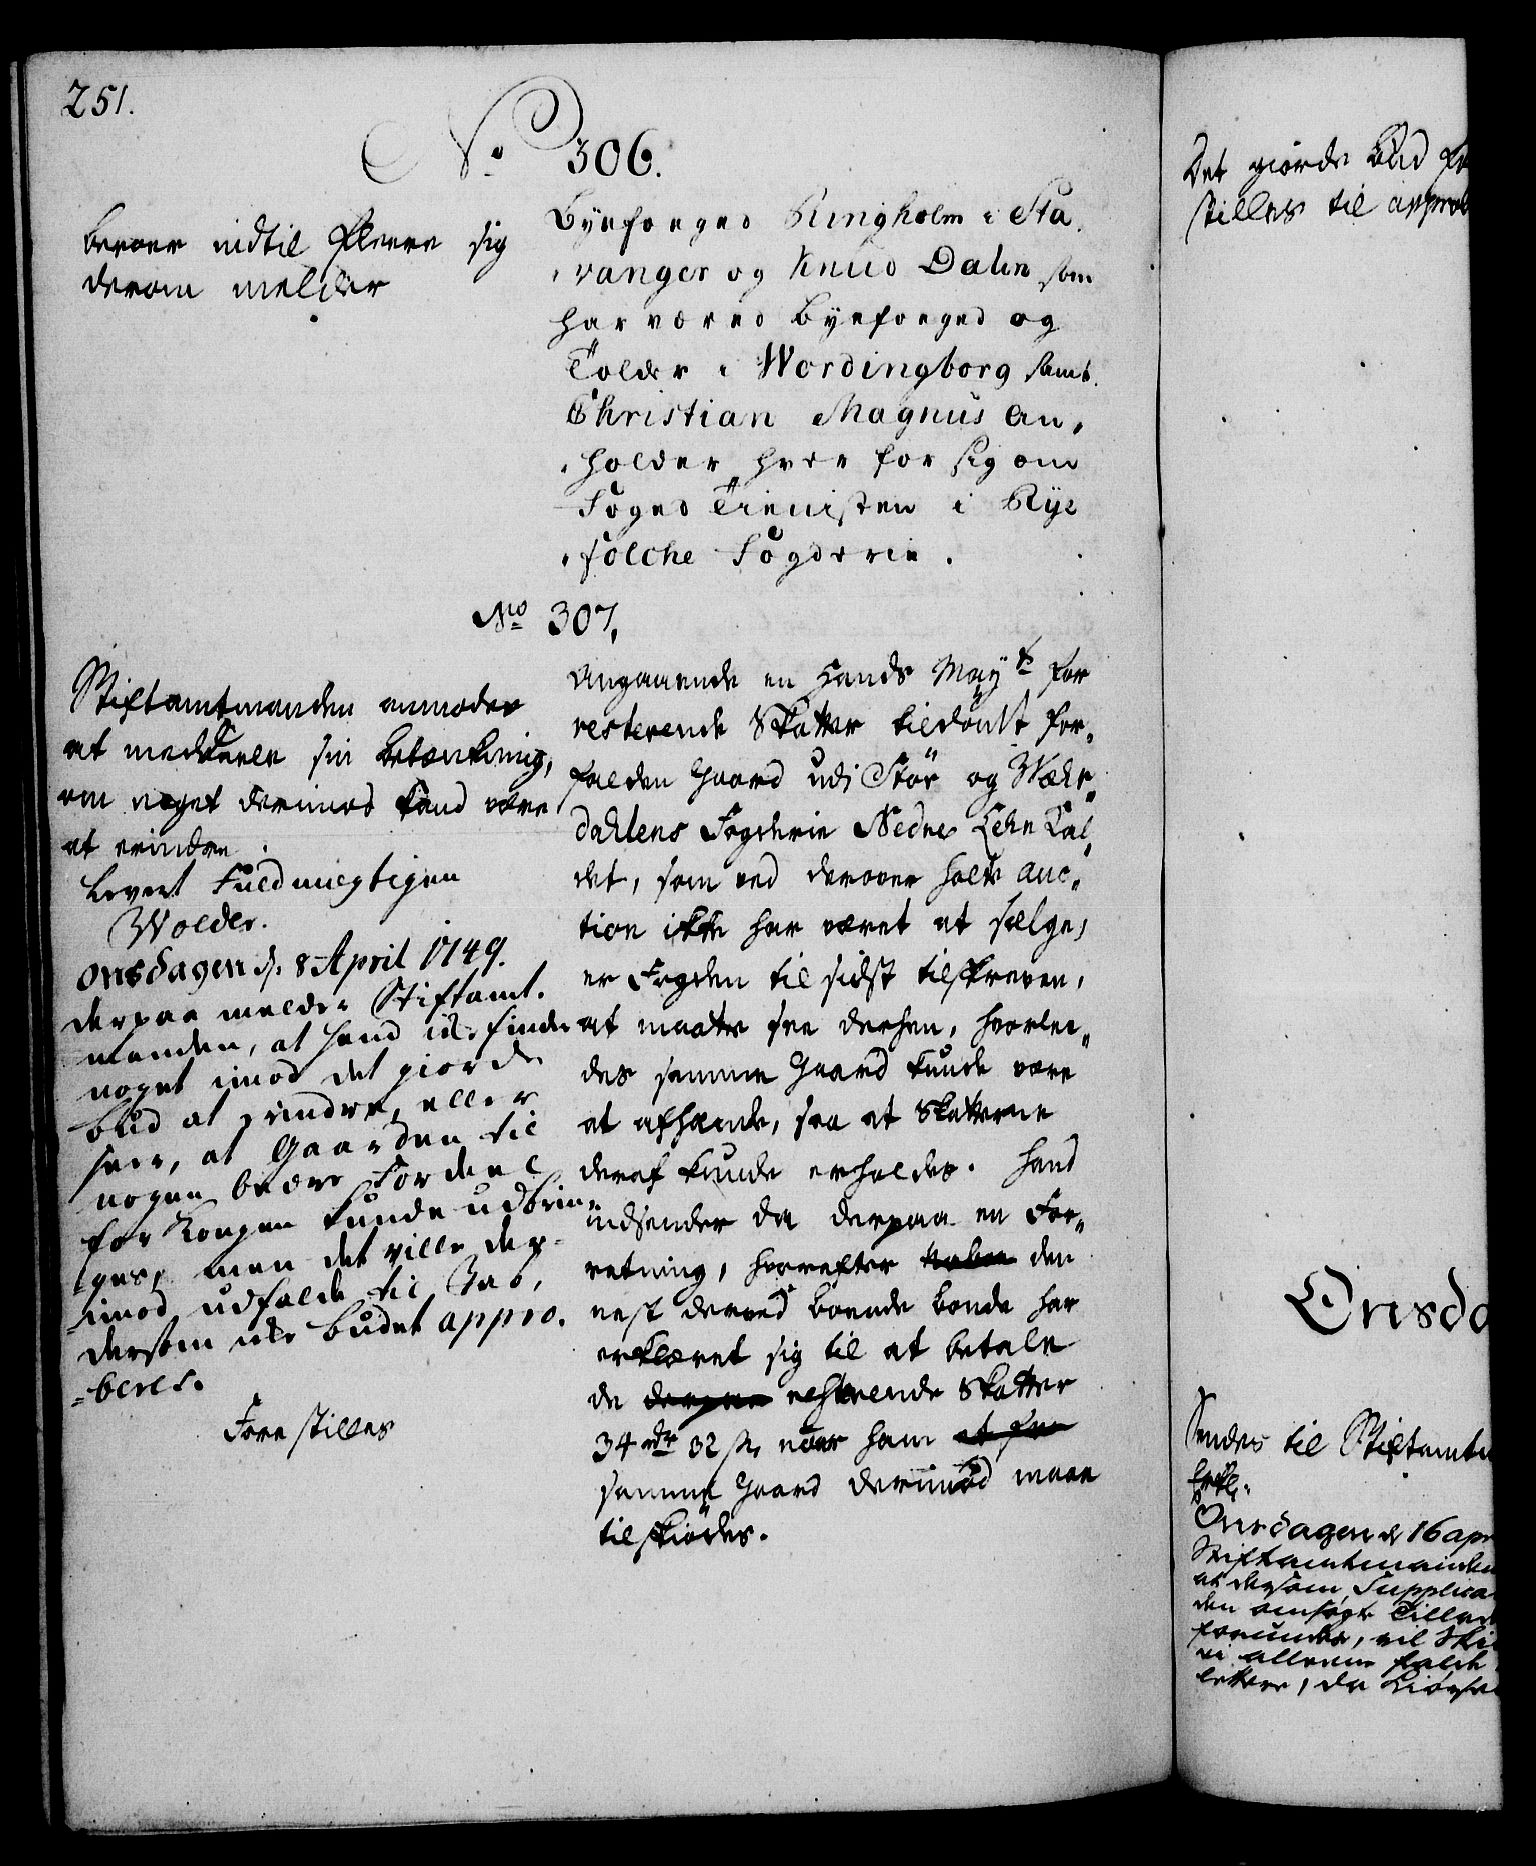 251.
No 306.
beroer indtil fleere sig
derom melder
Byefoeged Ringholm i Sta,
,vanger og Knud Dalin som
har væred Byefoeged og
Tolder i Wordingborg samt
Christian Magnus an,
,holder hver for sig om
Foged Tienisten i Rye
,folche Fogderie.
No 307.
Stiftamtmanden anmodes
at meddeele sin betænkning,
om noget derimod kand være
at erindre.
Levert Fuldmegtigen
Wolder.
Onsdagen d. 8 April 1749.
derpaa melder Stiftamt.
manden, at hand icke finder
noget imod det giorde
bud at erindre, eller
seer, at Gaarden til
nogen bedre Fordeel
for Kongen kunde udbrin,
ges, men det ville der,
,imod udfalde til Tab,
dersom icke budet appro.
=beres.
Forestilles
Angaaende en Hands Mayts for
resterende Skatter tildømt for,,
falden Gaard udi Stør og Wær,,
dahlens Fogderie Nedre Lehn kal,,
det, som ved derover holte Auc,,
tion ikke har været at sælge,
er Fogden til sidst tilskreven,
at maatte see derhen, hvorlee,,
des samme Gaard kunde være
at afhænde, saa at Skatterne
deraf kunde erholdes. Hand
indsender da derpaa en For,,
retning, hvorefter den
nest derved boende bonde har
erklæret sig til at betale
de derpaa resterende Skatter
34 rdr 32 s, naar ham at faa
samme Gaard derimod maae
tilskiødes.
Det giorde Bud
stilles til
Onsda
Sendes til Stiftamtm
Erkl.
Onsdagen d 16 apr
Stiftamtmanden
at dersom Supplica
den ansøgte Tillad
forundes, vil